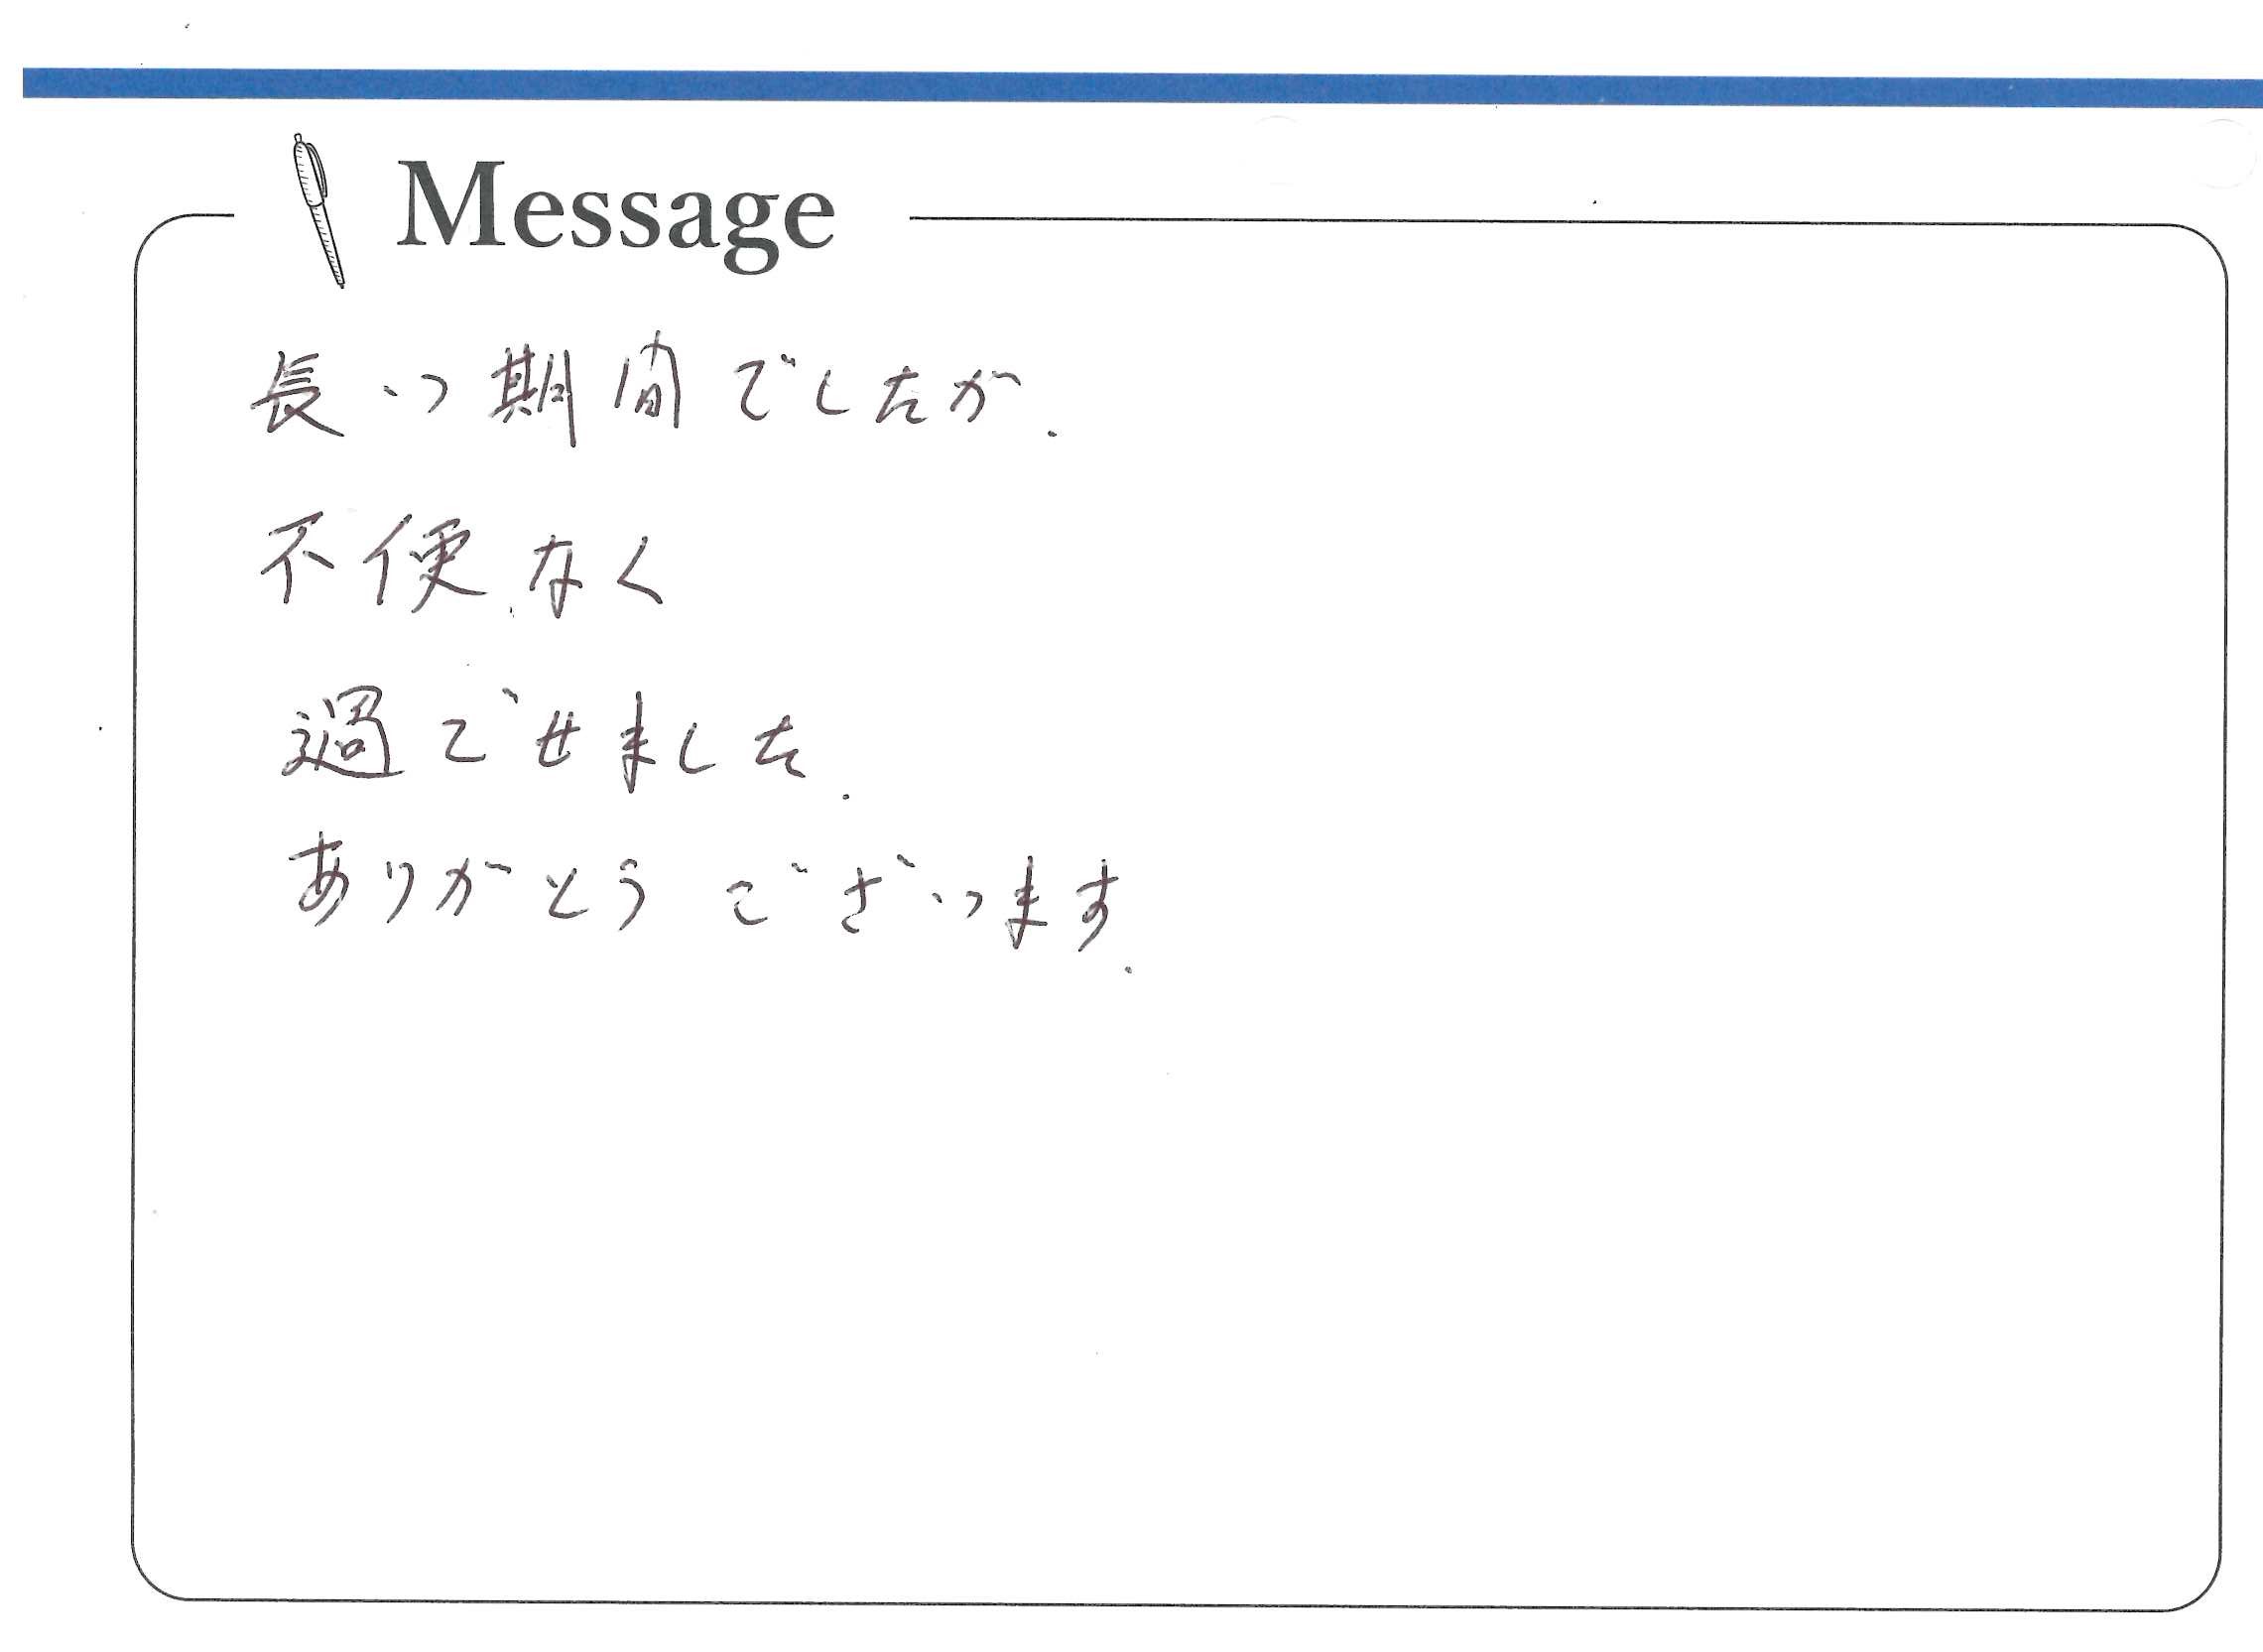 Message
長い期間でしたが.
不便なく
過ごせました.
ありがとうございます.